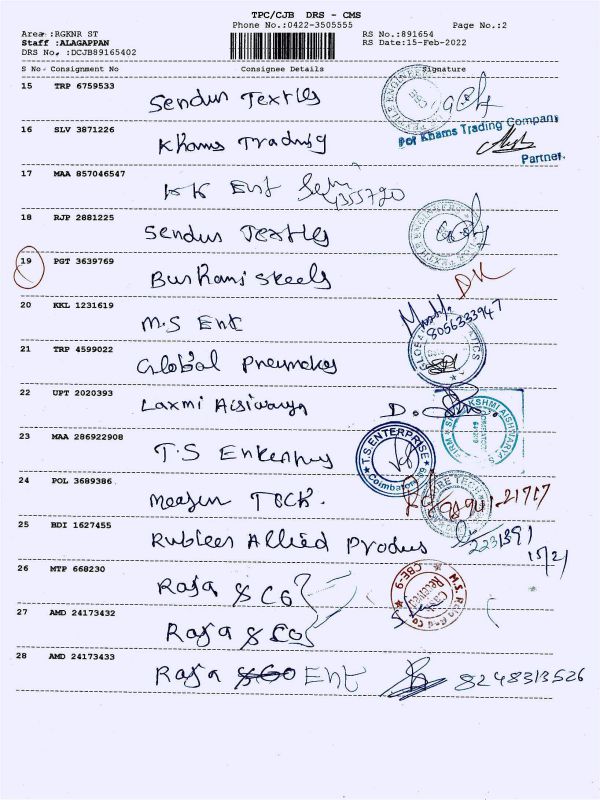 TPC/CJB DRS - CMS
Phone No.:0422-3505555 Page No.:2
Area :RGKNR ST RS No.:891654
Staff :ALAGAPPAN RS Date:15-Feb-2022
DRS No. :DCJB89165402
S No Consignment No Consignee Details Signature
15 TRP 6759533 Sendus Textles
16 SLV 3871226 Khams Trading
For Khams Trading Company
Partner.
17 MAA 857046547 KK Ent
18 RJP 2881225 Sendus Textles
19 PGT 3639769 Burhani Steels DK
20 KKL 1231619 M.S Ent
8056333947
21 TRP 4599022 Global Pneumakes
22 UPT 2020393 Laxmi Aisiwarya D.
23 MAA 286922908 T.S Enterprises
T.S ENTERPRISE
Coimbatore
24 POL 3689386 TOCK.
25 BDI 1627455 Rubleen Allied Produs
2231391
15/21
26 MTP 668230 Raja & CO
CBE-9
27 AMD 24173432 Raja & CO
28 AMD 24173433 Raja Ent 8248313526